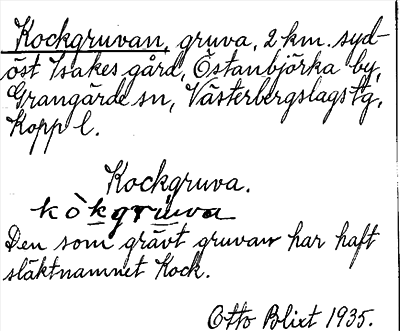 Kockgruvan, gruva, 2 km. syd-
öst Isakes gård, Östanbjörka by,
Grangärde sn, Västerbergslags tg,
Kopp l.
Kockgruva.
kòkgruva
Den som grävt gruvan har haft
släktnamnet Kock.
Otto Blixt 1935.